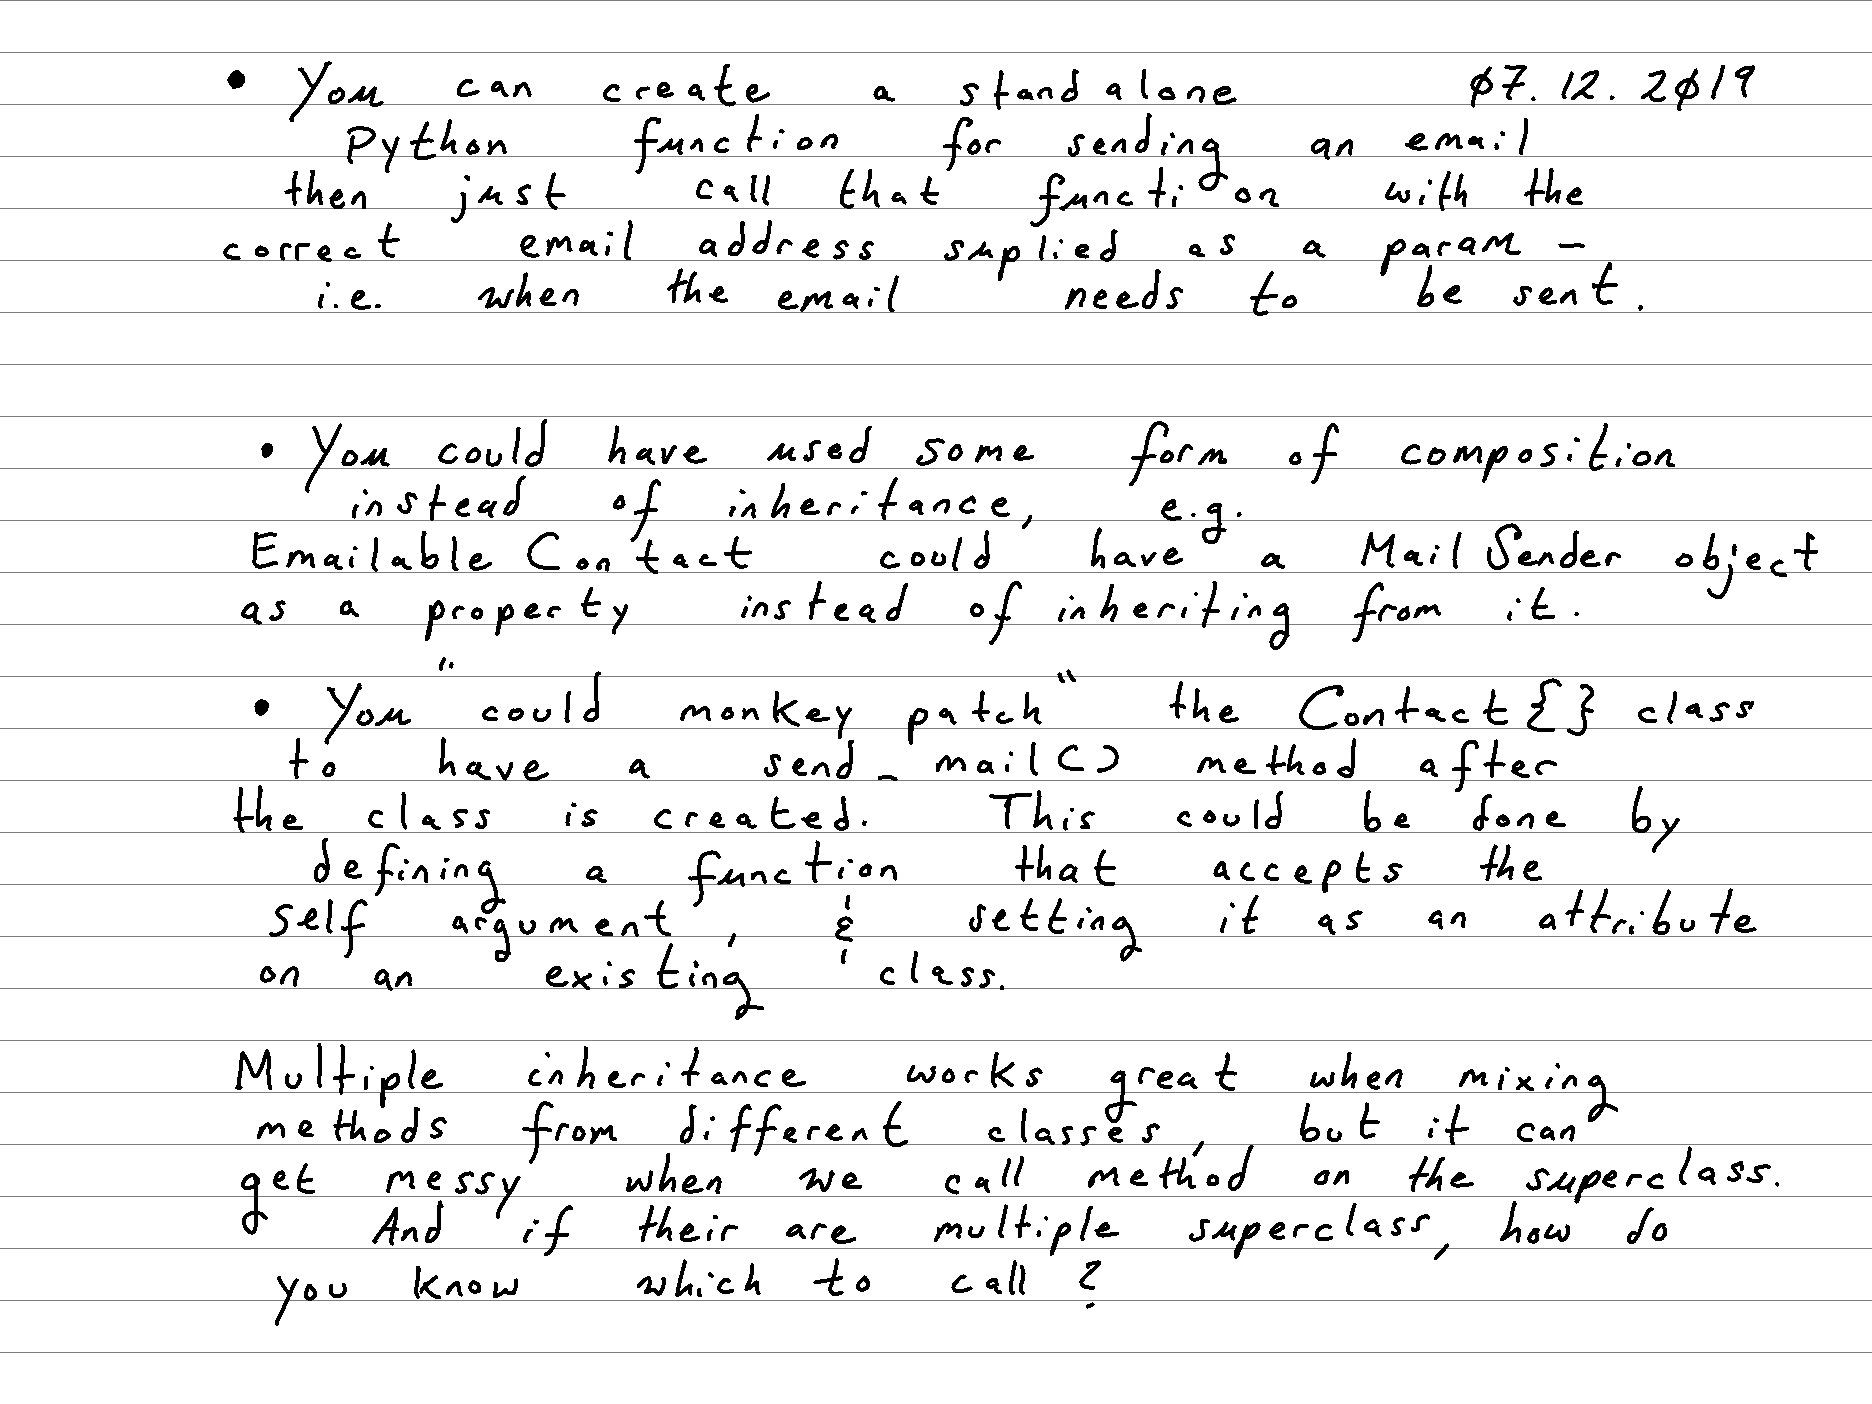 • You can create a standalone 07.12.2019
Python function for sending an email
then just call that function with the
correct email address suplied as a param –
i.e. when the email needs to be sent.
• You could have used some form of composition
instead of inheritance, e.g.
EmailableContact could have a MailSender object
as a property instead of inheriting from it.
• You "could monkey patch" the Contact{} class
to have a send_mail() method after
the class is created. This could be done by
defining a function that accepts the
self argument, & setting it as an attribute
on an existing class.
Multiple inheritance works great when mixing
methods from different classes, but it can
get messy when we call method on the superclass.
And if their are multiple superclass, how do
you know which to call?